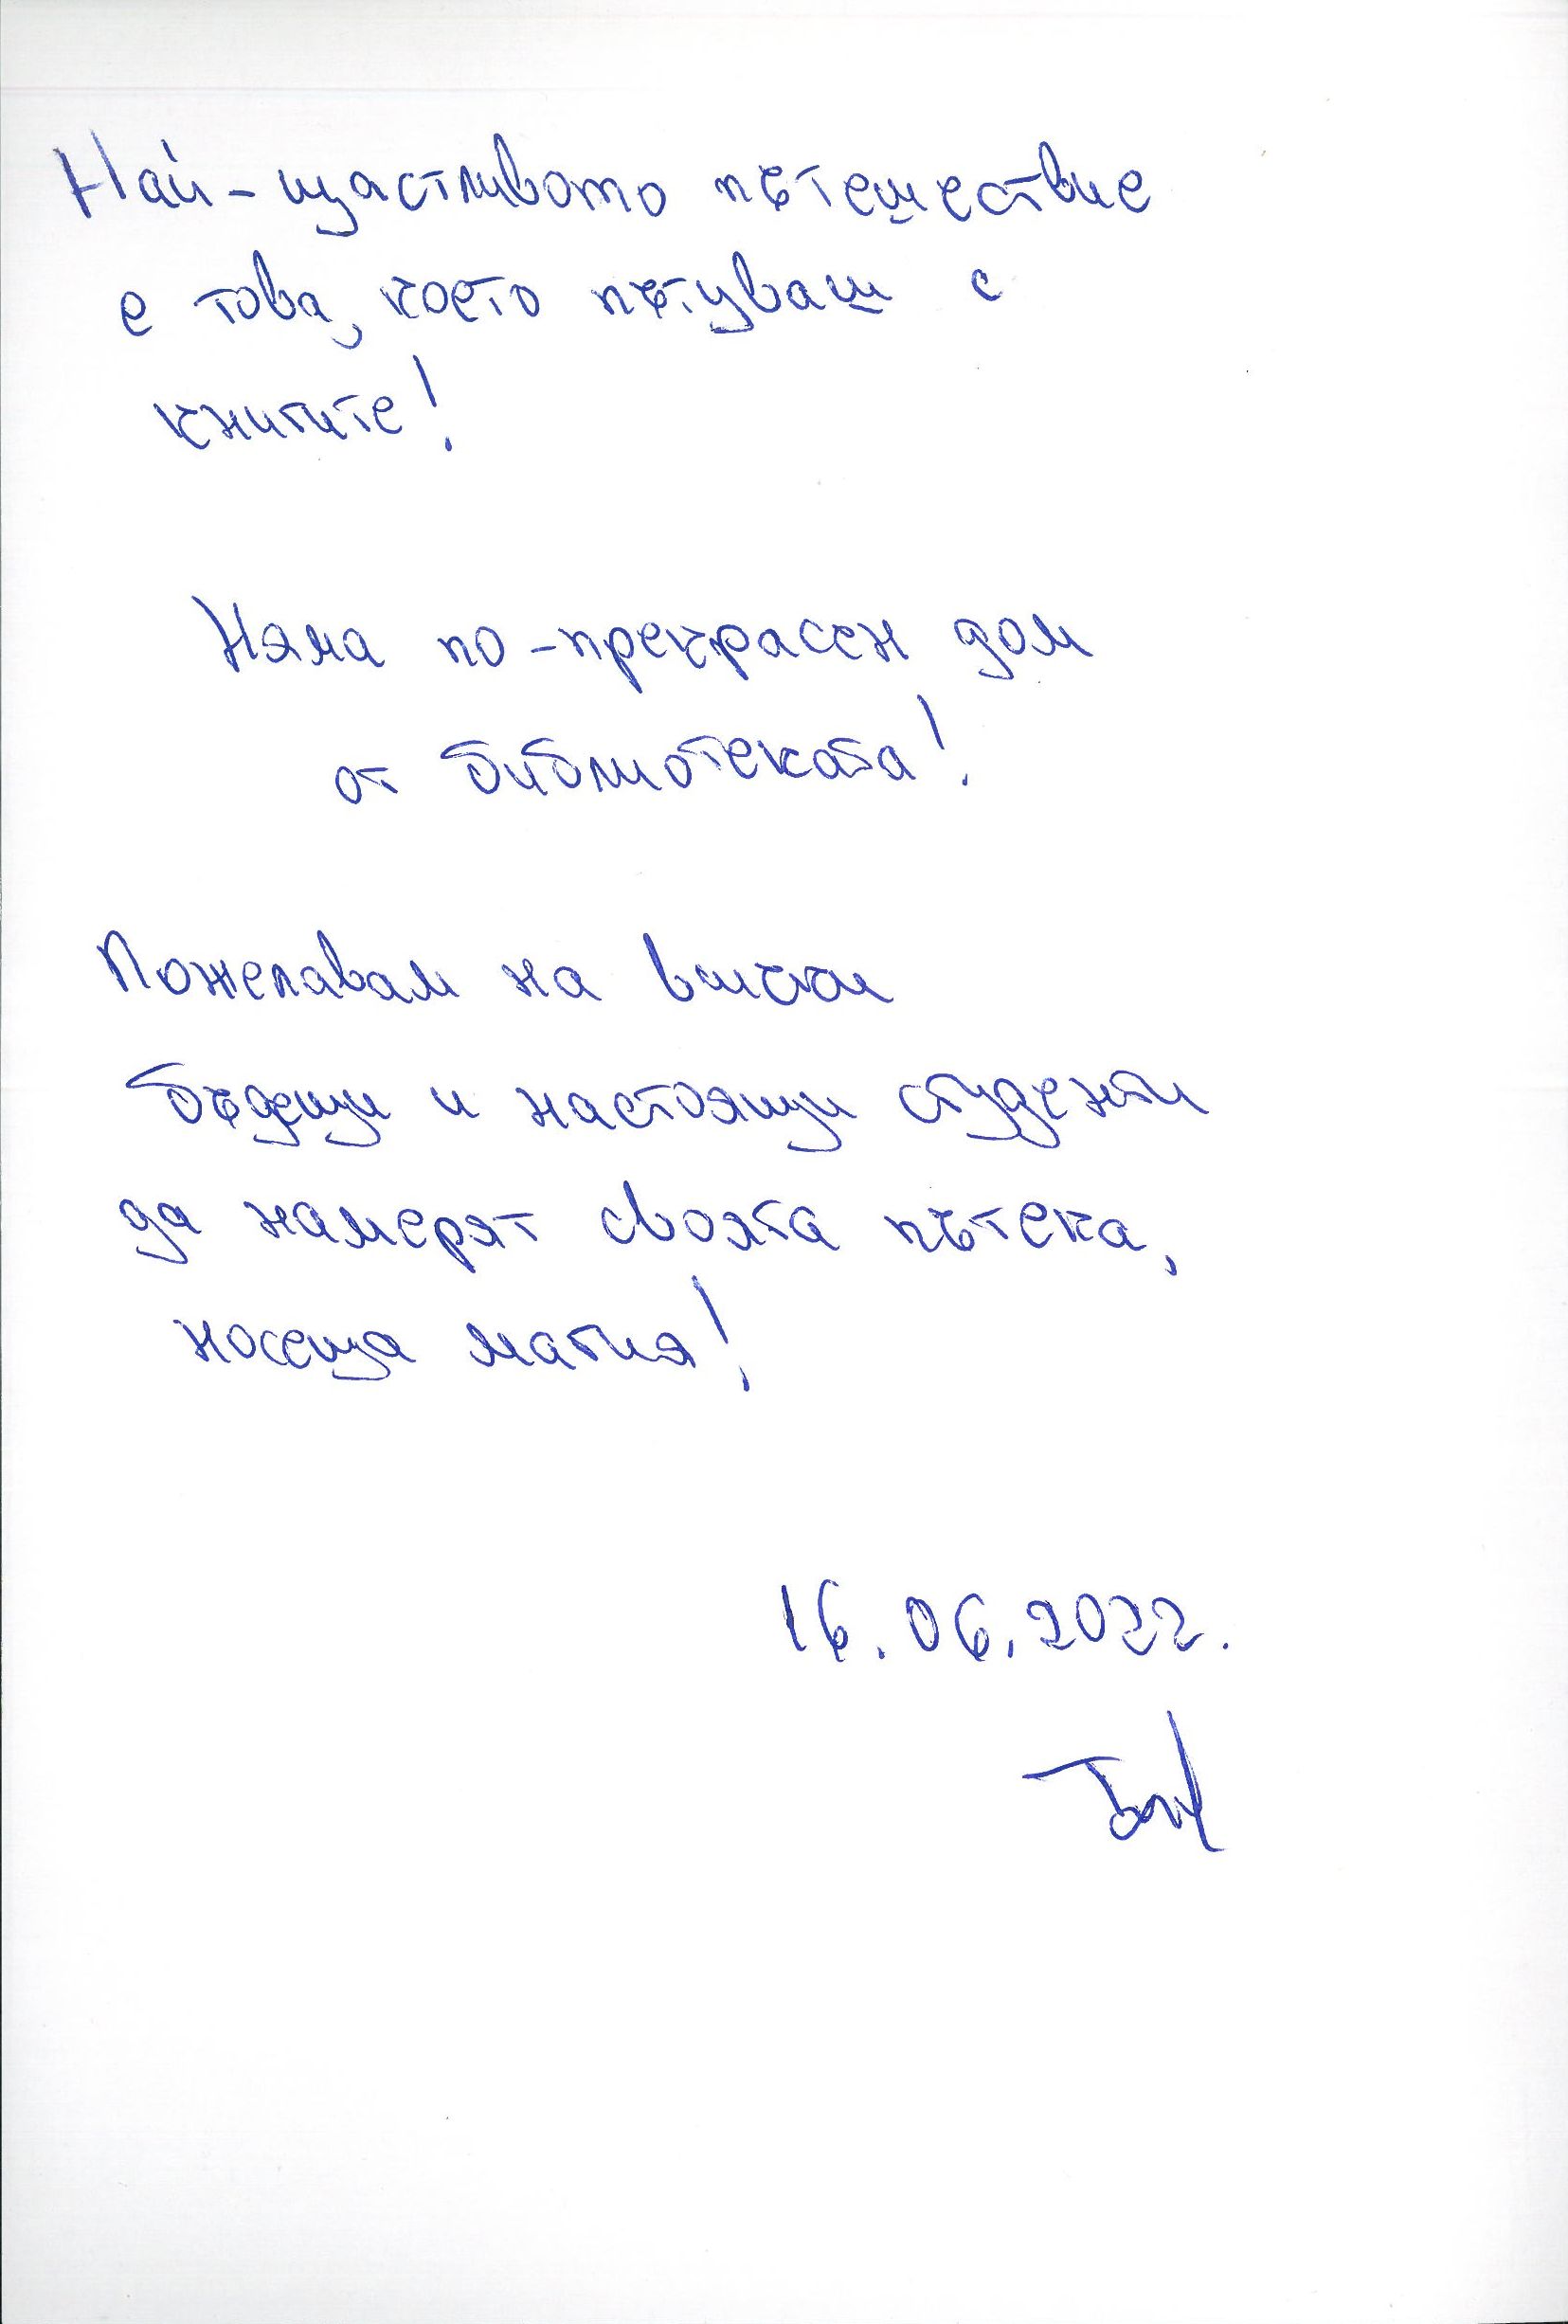 Най-щастливото пътешествие
е това, което пътуваш с
книгите!
Няма по-прекрасен дом
от библиотеката!
Пожелавам на всички
бъдещи и настоящи студенти
да намерят своята пътека,
носеща магия!
16.06.2022.